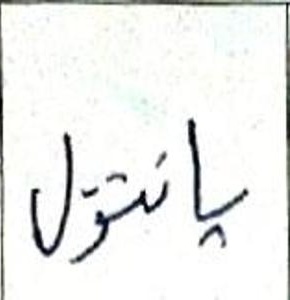 پانتول